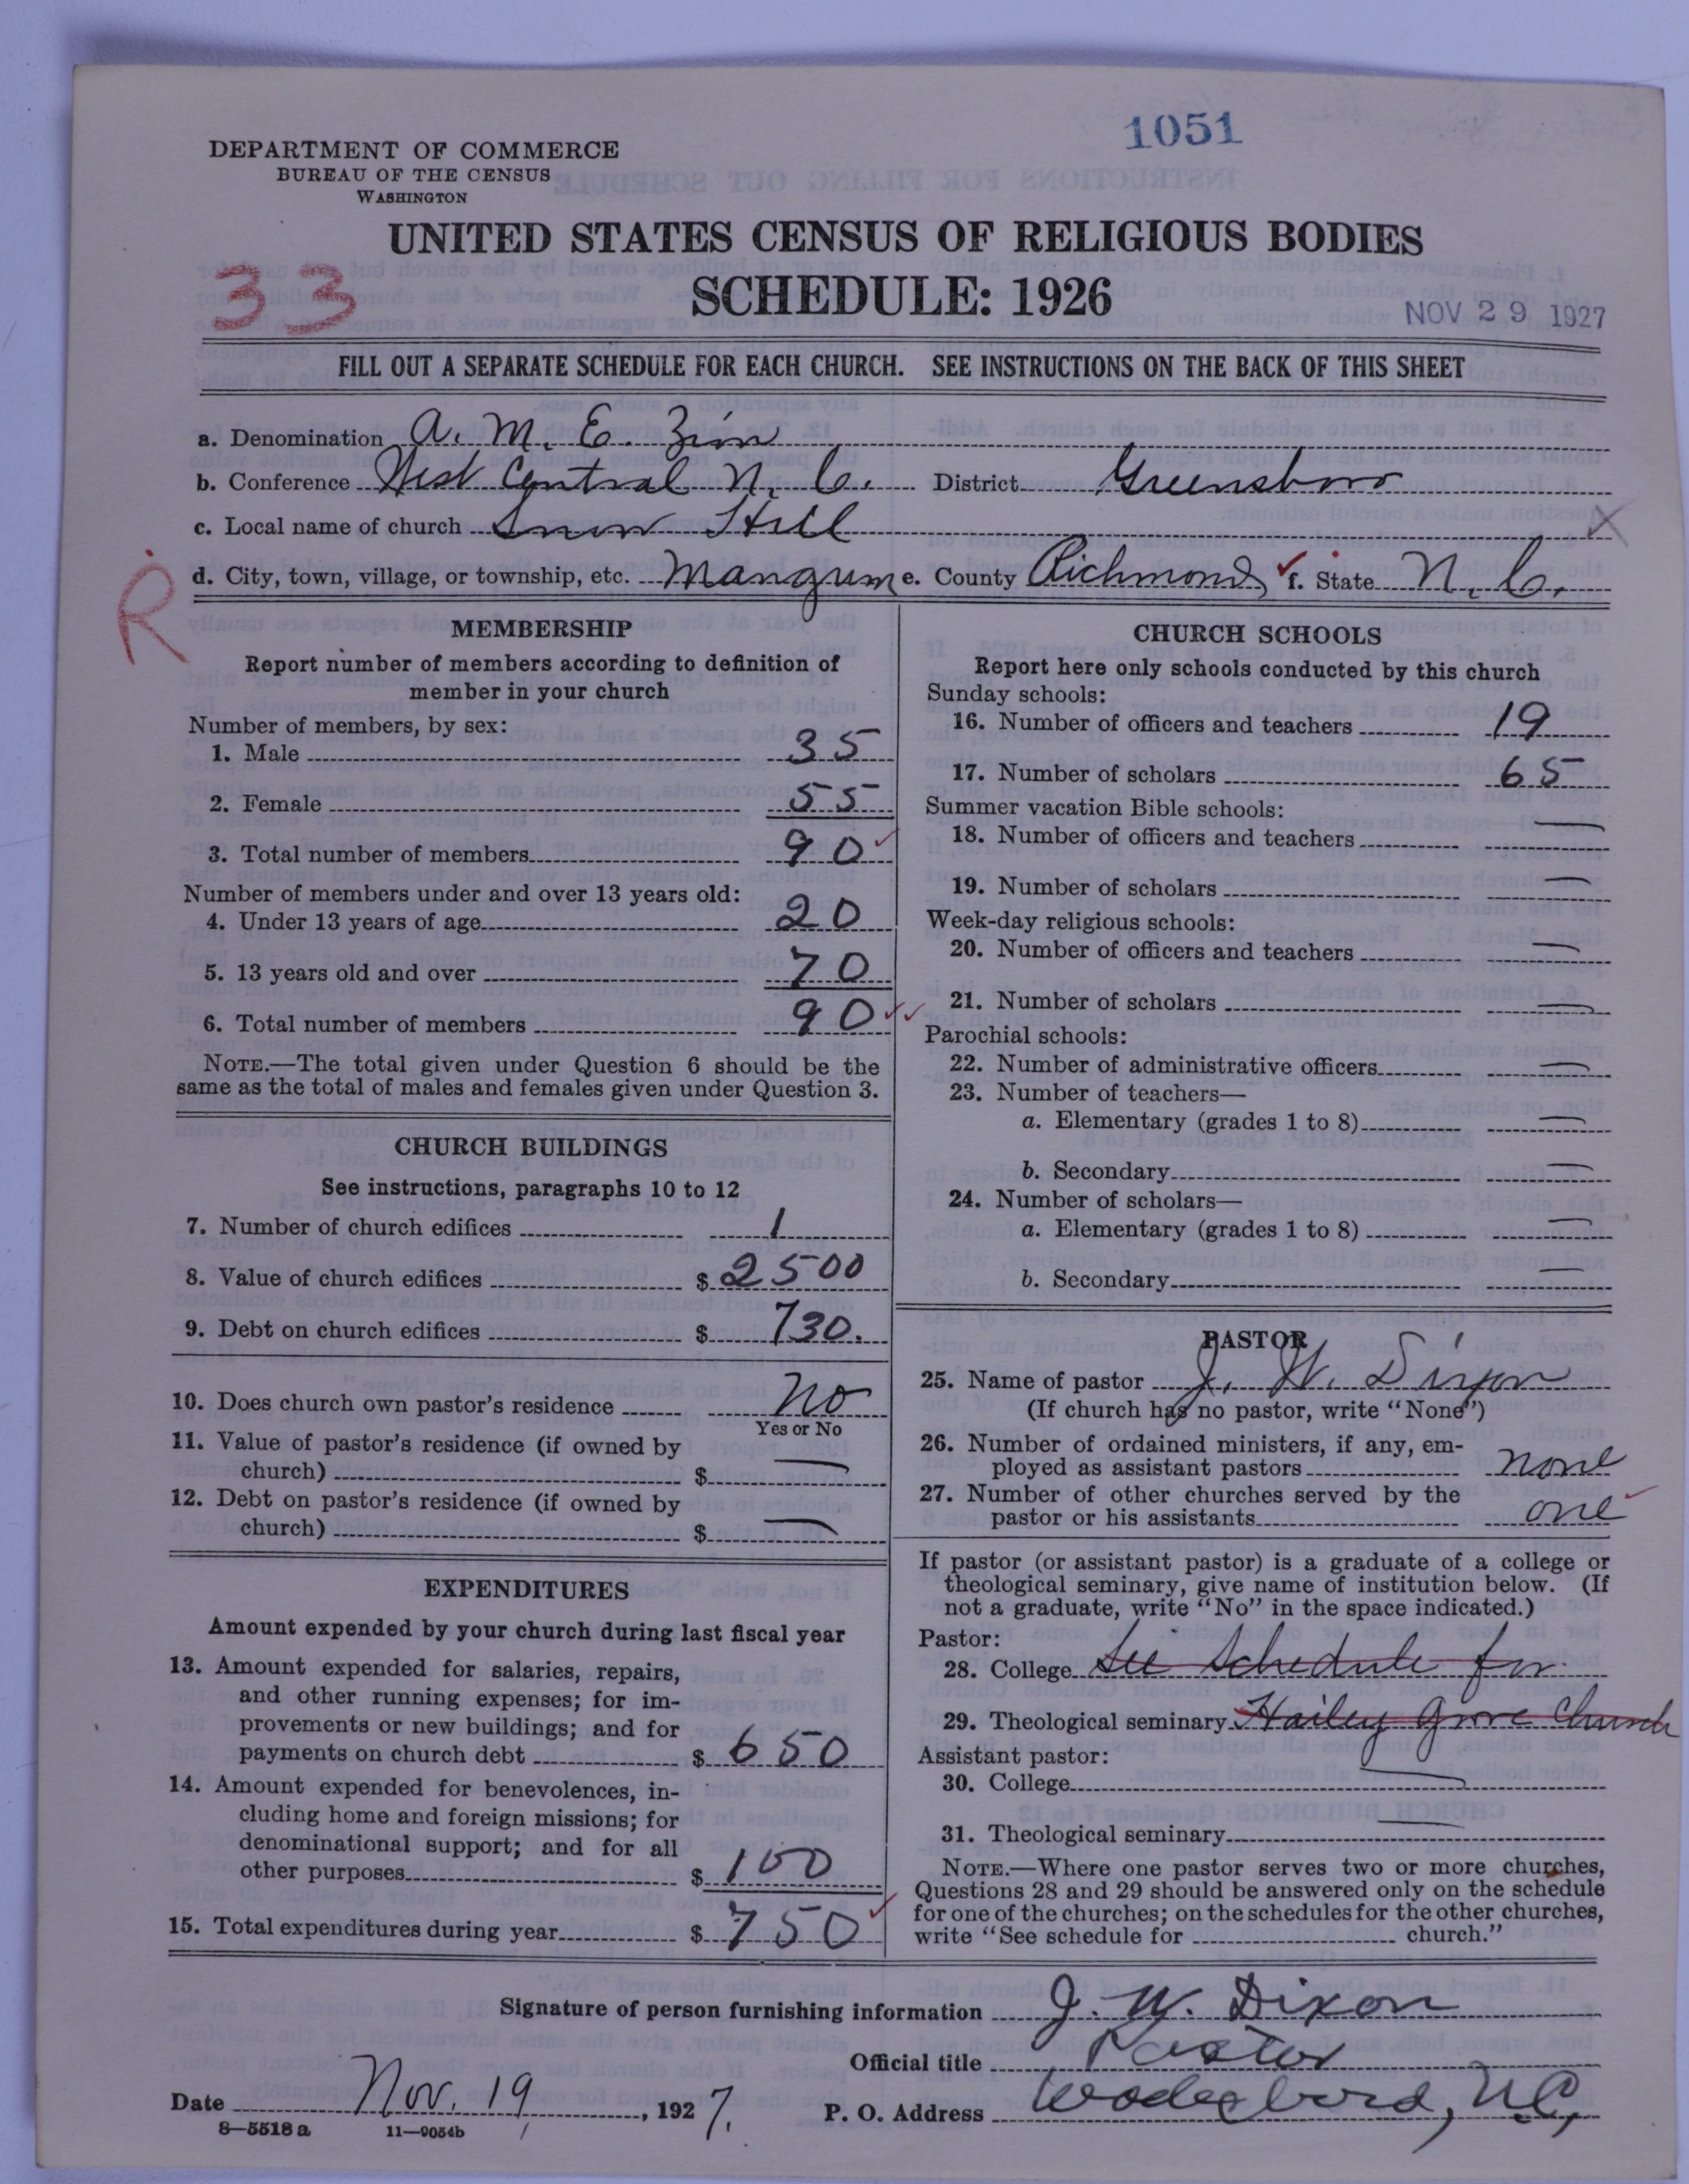 1051
DEPARTMENT OF COMMERCE
BUREAU OF THE CENSUS
WASHINGTON
UNITED STATES CENSUS OF RELIGIOUS BODIES
33
SCHEDULE: 1926
NOV 29 1927
FILL OUT A SEPARATE SCHEDULE FOR EACH CHURCH. SEE INSTRUCTIONS ON THE BACK OF THIS SHEET
a. Denomination A. M. E. Zion
b. Conference West Central N. C. District Greensboro
c. Local name of church Snow Hill
d. City, town, village, or township, etc. Mangum e. County Richmond f. State N. C.
R
MEMBERSHIP
Report number of members according to definition of
member in your church
Number of members, by sex:
1. Male 35
2. Female 55
3. Total number of members 90
Number of members under and over 13 years old:
4. Under 13 years of age 20
5. 13 years old and over 70
6. Total number of members 90
NOTE.—The total given under Question 6 should be the
same as the total of males and females given under Question 3.
CHURCH BUILDINGS
See instructions, paragraphs 10 to 12
7. Number of church edifices 1
8. Value of church edifices $ 2500
9. Debt on church edifices $ 730.
10. Does church own pastor's residence No
Yes or No
11. Value of pastor's residence (if owned by
church) $ —
12. Debt on pastor's residence (if owned by
church) $ —
EXPENDITURES
Amount expended by your church during last fiscal year
13. Amount expended for salaries, repairs,
and other running expenses; for im-
provements or new buildings; and for
payments on church debt $ 650
14. Amount expended for benevolences, in-
cluding home and foreign missions; for
denominational support; and for all
other purposes $ 100
15. Total expenditures during year $ 750
CHURCH SCHOOLS
Report here only schools conducted by this church
Sunday schools:
16. Number of officers and teachers 19
17. Number of scholars 65
Summer vacation Bible schools:
18. Number of officers and teachers —
19. Number of scholars —
Week-day religious schools:
20. Number of officers and teachers —
21. Number of scholars —
Parochial schools:
22. Number of administrative officers —
23. Number of teachers—
a. Elementary (grades 1 to 8) —
b. Secondary —
24. Number of scholars—
a. Elementary (grades 1 to 8) —
b. Secondary —
PASTOR
25. Name of pastor J. W. Dixon
(If church has no pastor, write "None")
26. Number of ordained ministers, if any, em-
ployed as assistant pastors none
27. Number of other churches served by the
pastor or his assistants one
If pastor (or assistant pastor) is a graduate of a college or
theological seminary, give name of institution below. (If
not a graduate, write "No" in the space indicated.)
Pastor:
28. College See Schedule for
29. Theological seminary Hailey Grove Church
Assistant pastor:
30. College —
31. Theological seminary —
NOTE.—Where one pastor serves two or more churches,
Questions 28 and 29 should be answered only on the schedule
for one of the churches; on the schedules for the other churches,
write "See schedule for church."
Signature of person furnishing information J. W. Dixon
Official title Pastor
Date Nov. 19, 1927. P. O. Address Wadesboro, N.C.
8—5518 a 11—9054b